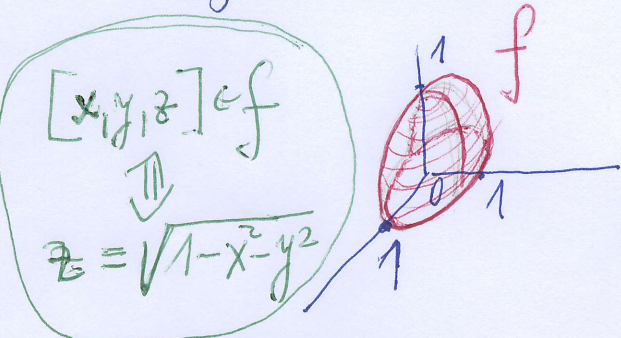 [x,y,z] ∈ f
⇕
z = √1-x²-y²
f
1
0
1
1